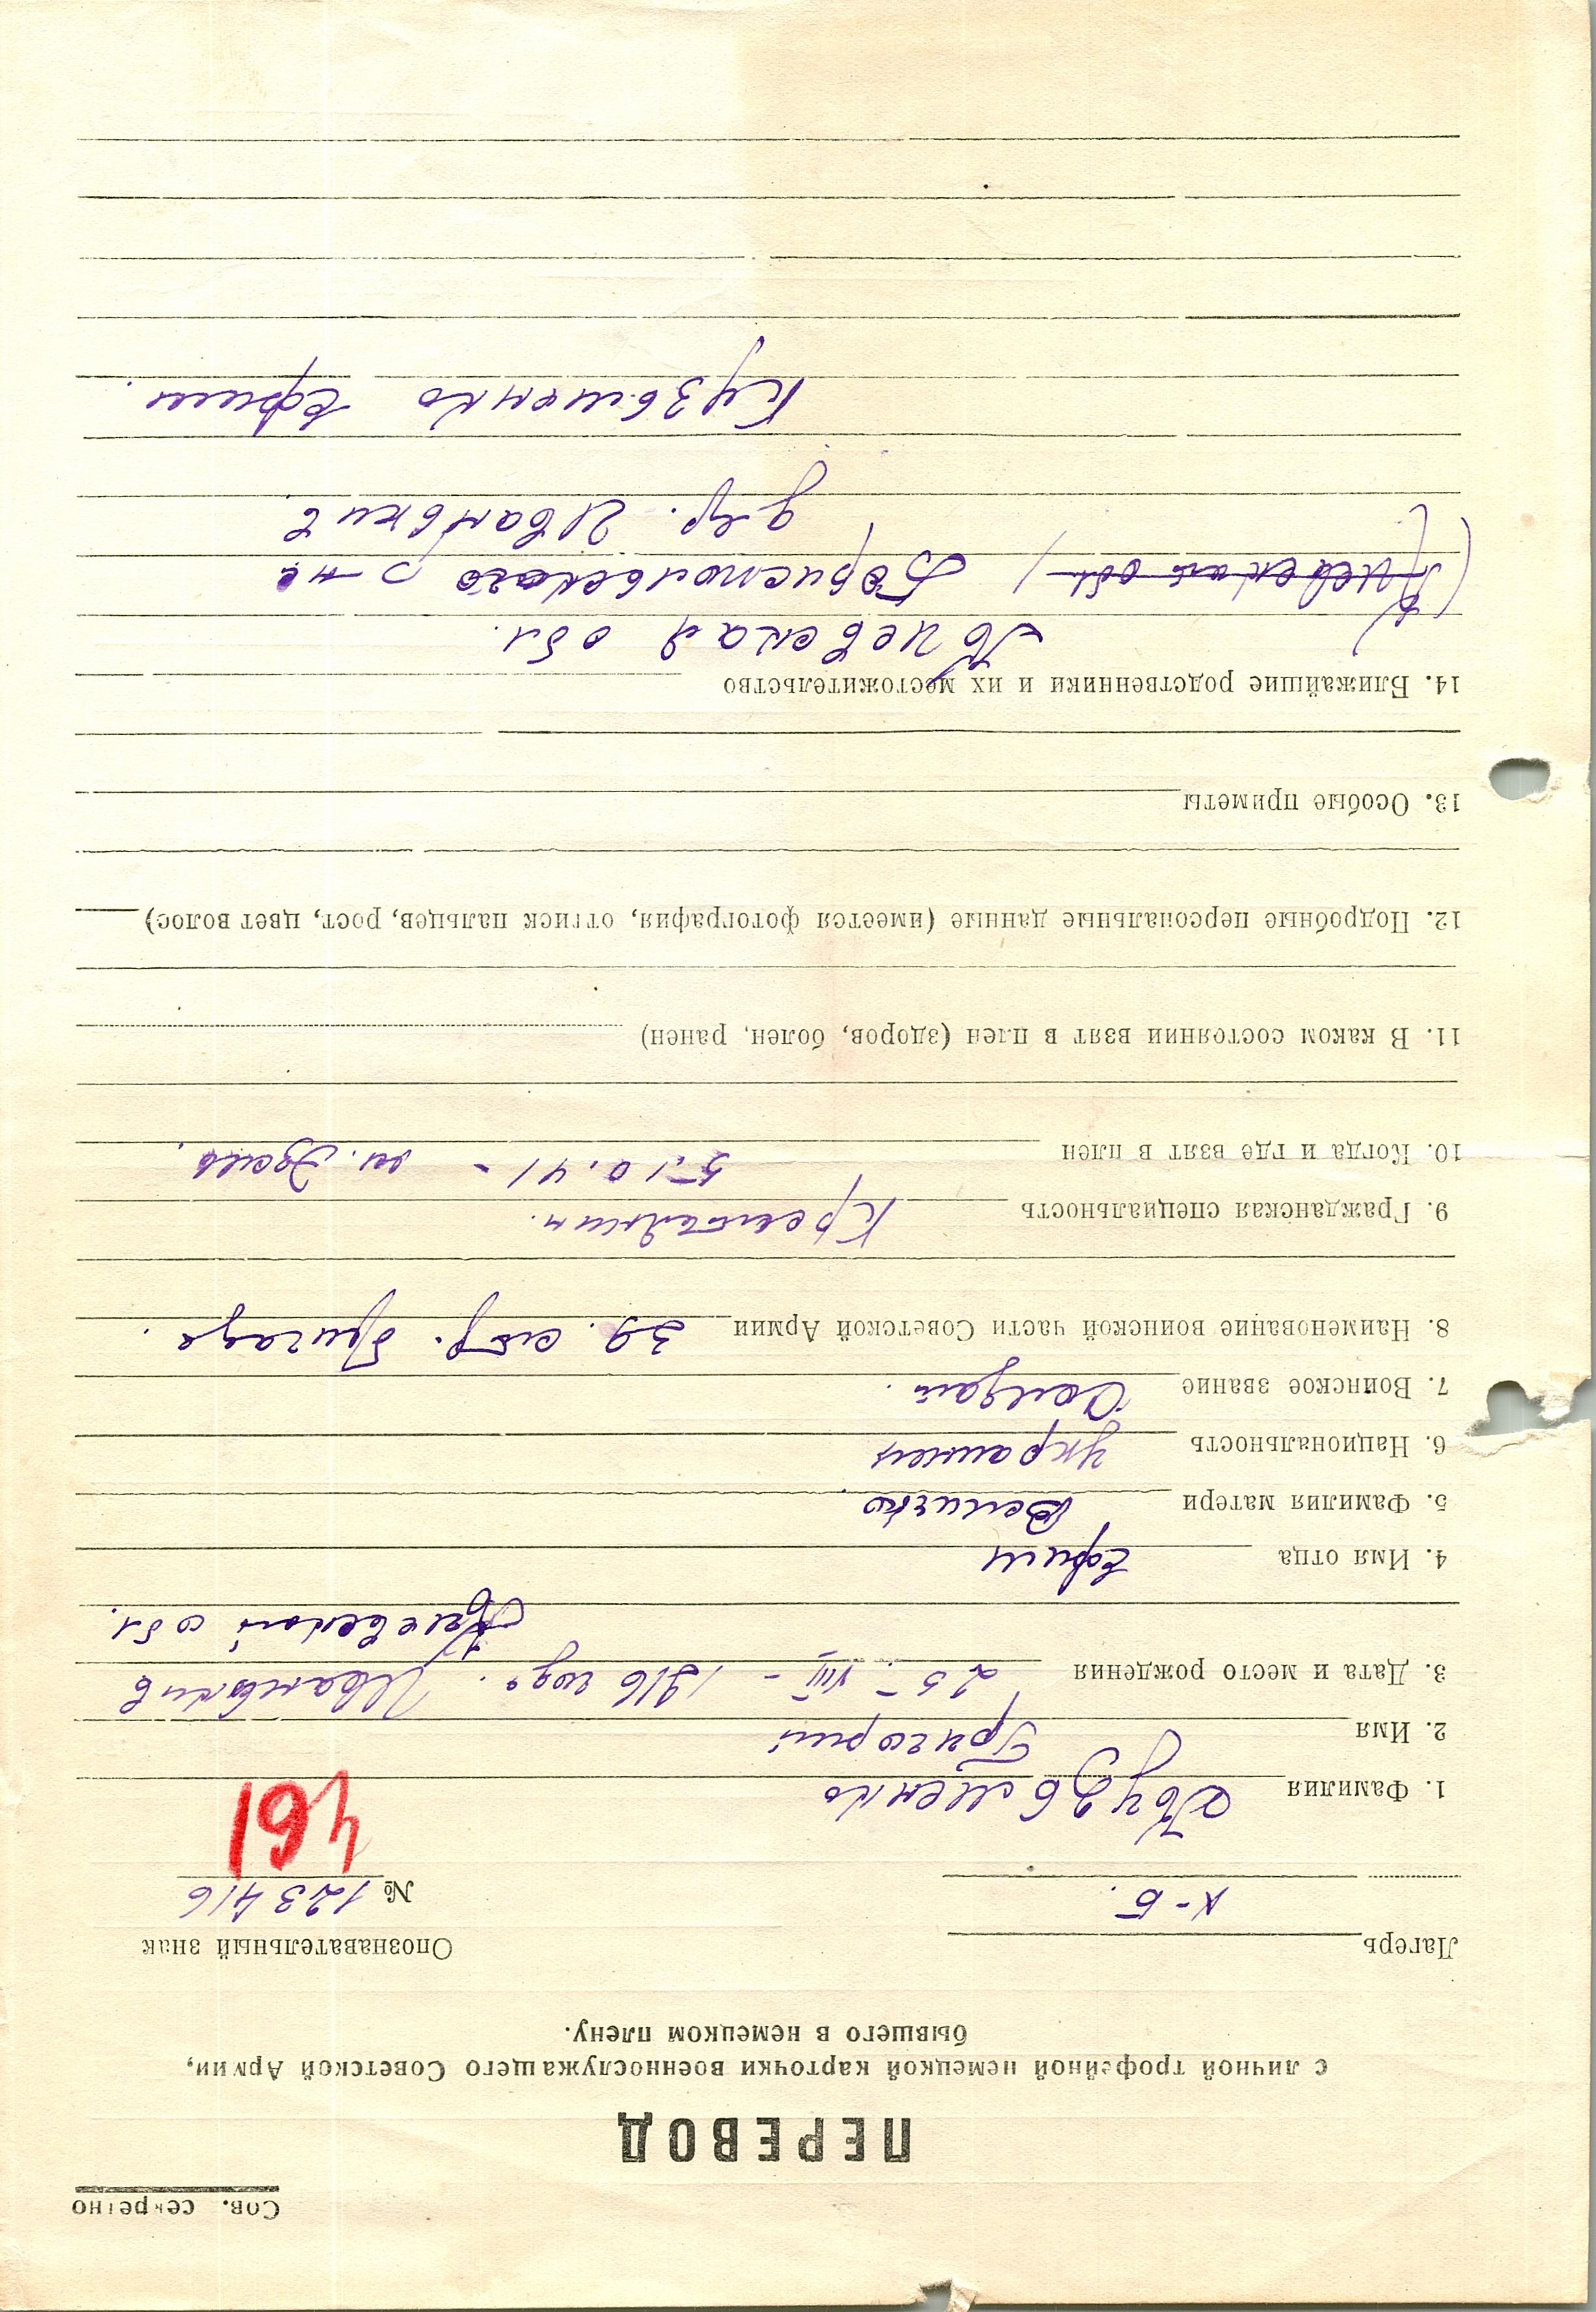 Сов. секретно
ПЕРЕВОД
с личной трофейной немецкой карточки военнослужащего Советской Армии,
бывшего в немецком плену.
Лагерь
Опознавательный знак
X-Б.
№ 123416
461
1. Фамилия Кузьменко
2. Имя Григорий
3. Дата и место рождения 25-VIII-1916 года. Иваньков
Киевской обл.
4. Имя отца Ефим
5. Фамилия матери Величко
6. Национальность украинец
7. Воинское звание Солдат.
8. Наименование воинской части Советской Армии 39. стр. бригада.
9. Гражданская специальность Крестьянин.
10. Когда и где взят в плен 5.10.41 - м.
11. В каком состоянии взят в плен (здоров, болен, ранен)
12. Подробные персональные данные (имеется фотография, оттиск пальцев, рост, цвет волос)
13. Особые приметы
14. Ближайшие родственники и их местожительство
Киевская обл.
(Киевская обл) Бориспольского р-на
дер. Иваньков
Кузьменко Ефим.